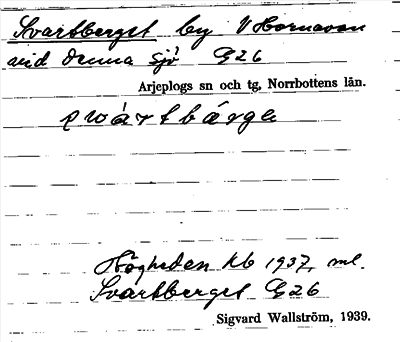 Svartberget by V Hornavan
vid denna sjö G26
Arjeplogs sn och tg, Norrbottens län.
swártbárge
Högheden kb 1937, ml.
Svartberget G26
Sigvard Wallström, 1939.